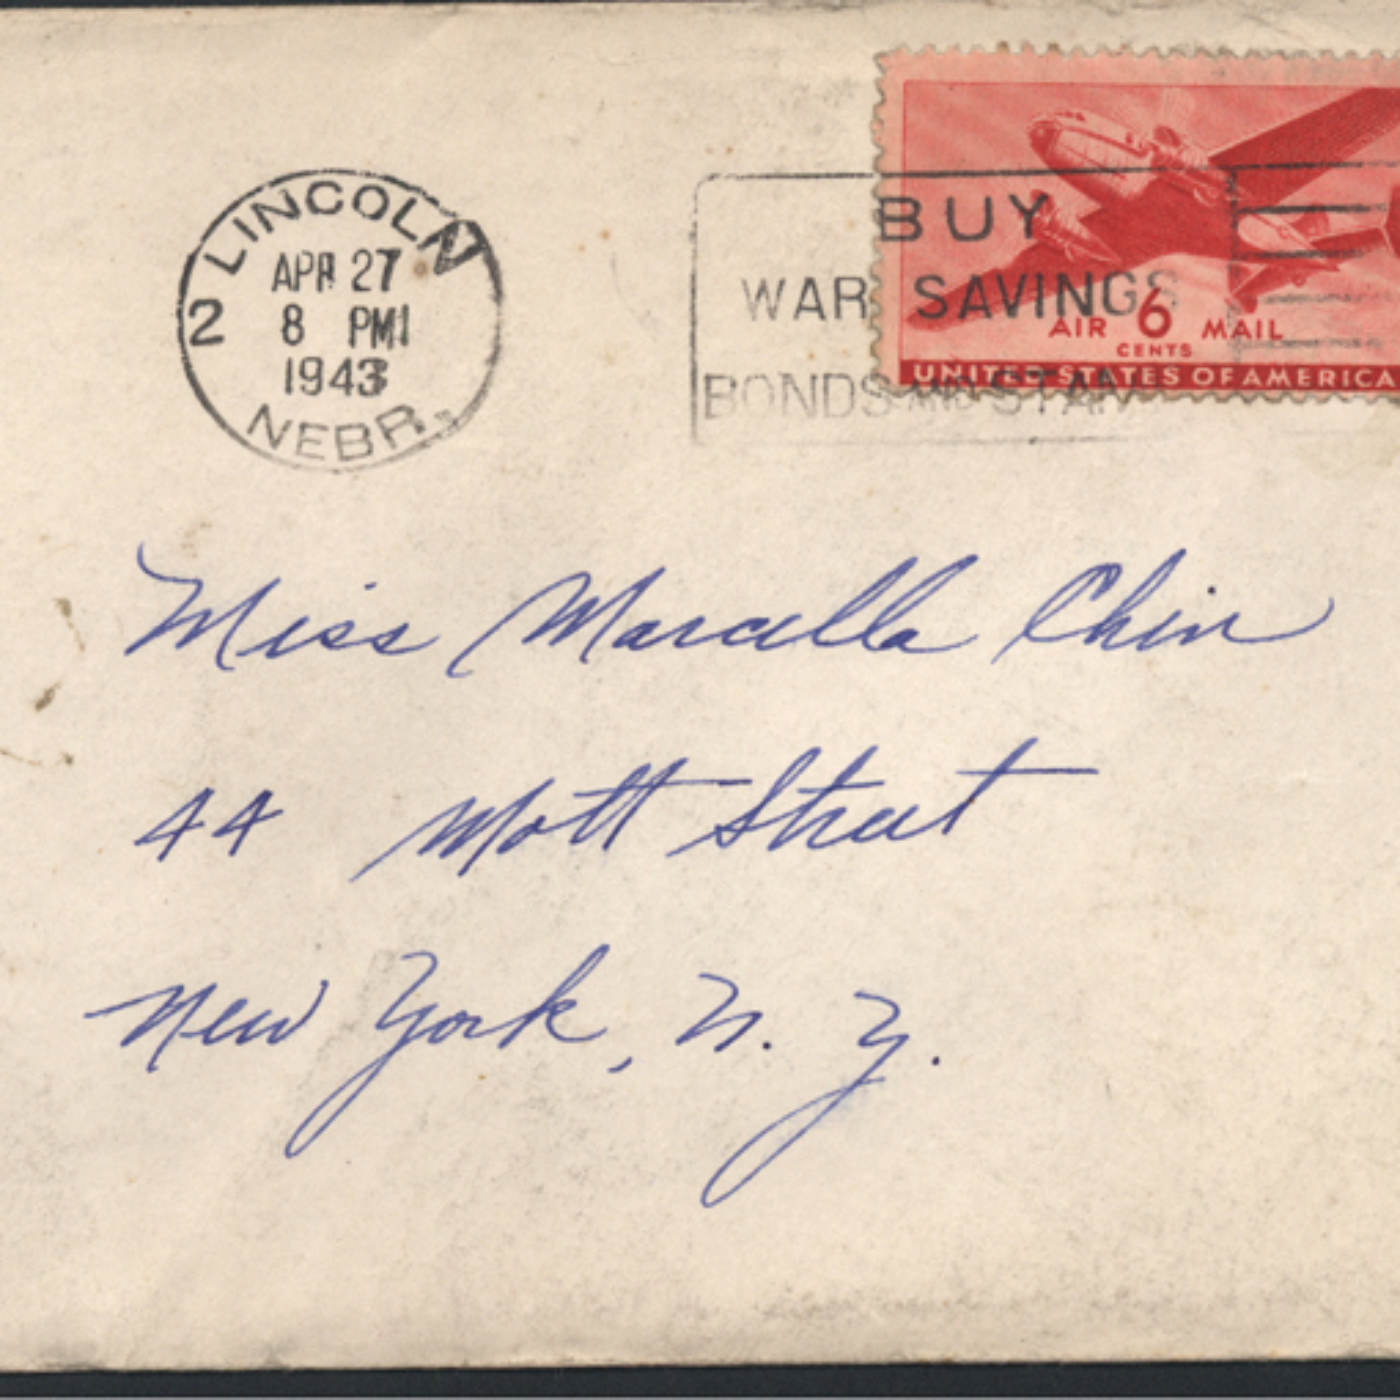 LINCOLN
APR 27
2 8 PM1
1943
NEBR.
BUY
WAR SAVINGS
BONDS AND STAMPS
AIR 6 MAIL
CENTS
UNITED STATES OF AMERICA
Miss Marcella Chin
44 Mott Street
New York, N. Y.